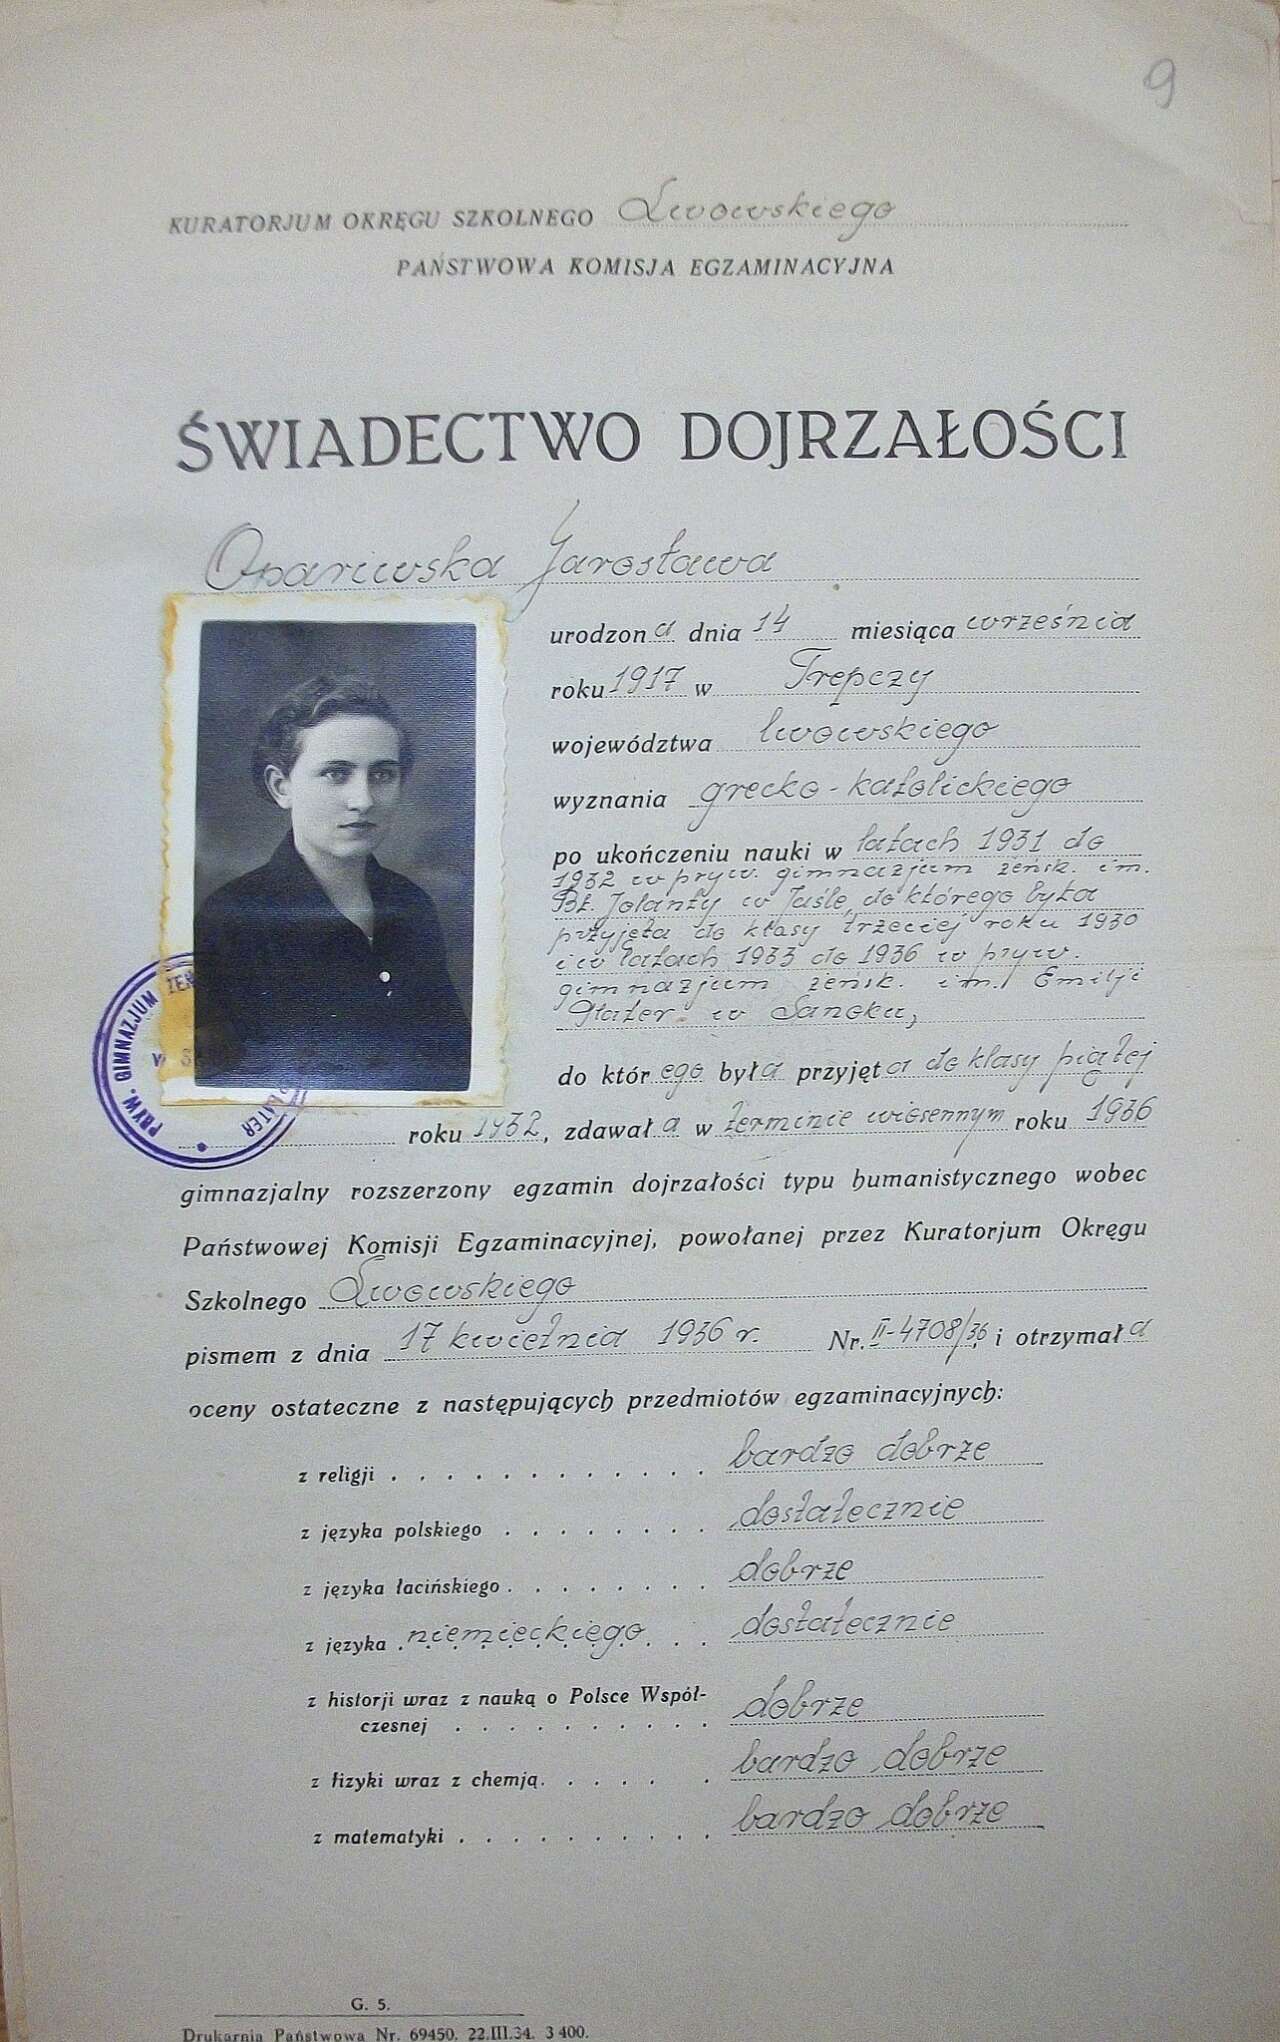 9
KURATORJUM OKRĘGU SZKOLNEGO Lwowskiego
PAŃSTWOWA KOMISJA EGZAMINACYJNA
ŚWIADECTWO DOJRZAŁOŚCI
Opariwska Jarosława
urodzona dnia 14 miesiąca września
roku 1917 w Trepczy
województwa lwowskiego
wyznania grecko-katolickiego
po ukończeniu nauki w latach 1931 do
1932 w pryw. gimnazjum żeńsk. im.
Bł. Jolanty w Jaśle, do którego była
przyjęta do klasy trzeciej roku 1930
i w latach 1933 do 1936 w pryw.
gimnazjum żeńsk. im. Emilji
Plater w Sanoku,
do którego była przyjęta do klasy piątej
roku 1932, zdawała w terminie wiosennym roku 1936
gimnazjalny rozszerzony egzamin dojrzałości typu humanistycznego wobec
Państwowej Komisji Egzaminacyjnej, powołanej przez Kuratorjum Okręgu
Szkolnego Lwowskiego
pismem z dnia 17 kwietnia 1936 r. Nr. II-4708/36, i otrzymała
oceny ostateczne z następujących przedmiotów egzaminacyjnych:
z religji . . . . . . . . . . . . bardzo dobrze
z języka polskiego . . . . . . . . dostatecznie
z języka łacińskiego . . . . . . . . dobrze
z języka niemieckiego . . . dostatecznie
z historji wraz z nauką o Polsce Współ-
czesnej . . . . . . . . . . dobrze
z fizyki wraz z chemją. . . . . . bardzo dobrze
z matematyki . . . . . . . . . . bardzo dobrze
PRYW. GIMNAZJUM ŻEŃ
W S
PLATER
G. 5.
Drukarnia Państwowa Nr. 69450. 22.III.34. 3 400.